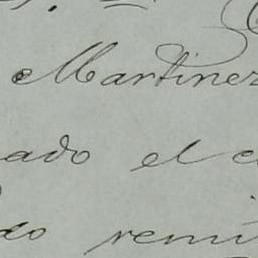 Martinez
ado el c
do remi